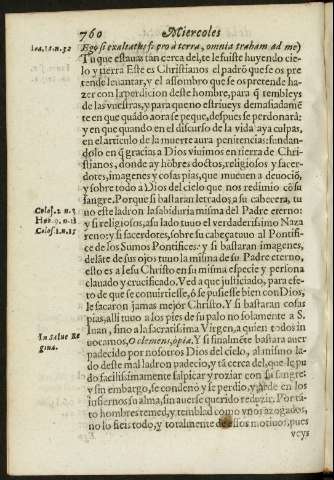 760 Miercoles
Ego si exaltatus fuero à terra, omnia traham ad me)
Tu que estauas tan cerca del, te le fuiste huyendo cie-
lo y tierra Este es Christianos el padrō que se os pre-
tende leuantar, y el assombro que se os pretende ha-
zer con la perdicion deste hombre, para q̃ tembleys
de las vuestras, y para que no estriueys demasiadamẽ
te en que quādo aora se peque, despues se perdonarà:
y en que quando en el discurso de la vida aya culpas,
en el articulo de la muerte aura penitencias: fundan-
dolo en q̃ gracias a Dios viuimos en tierra de Chri-
stianos, donde ay hōbres doctos, religiosos y sacer-
dotes, imagenes y cosas pias, que mueuen a deuociō,
y sobre todo a Dios del cielo que nos redimio cō su
sangre. Porque si bastaran letrados, a su cabecera, tu
uo este ladron la sabiduria misma del Padre eterno:
y si religiosos, a su lado tuuo el verdaderissimo Naza
reno: y si sacerdotes, sobre su cabeça tuuo al Pontifi-
ce de los Sumos Pontifices: y si bastaran imagines,
delāte de sus ojos tuuo la misma de su Padre eterno,
esto es a Iesu Christo en su misma especie y persona
clauado y crucificado. Ved a que justiciado, para efe-
to de que se conuirtiesse, ò se pusiesse bien con Dios,
le sacaron jamas mejor Christo. Y si bastaran cosas
pias, alli tuuo a los pies de su palo no solamente a S.
Iuan, sino a la sacratissima Virgen, a quien todos in
uocamos, O clemens, ò pia. Y si finalmẽte bastara auer
padecido por nosotros Dios del cielo, al mismo la-
do deste mal ladron padecio, y tā cerca del, que le pu
do facilissimamente salpicar y roziar con su sangre:
y sin embargo, se condenò y se perdio, y arde en los
infiernos su alma, sin auerse querido reduzir. Por tā-
to hombres temed, y temblad como vnos azogados,
no lo fieis todo, y totalmente de essos motiuos, pues
veys
Ioa. 12. n. 32
Colos. 2. n. 3
Colos. 1. n. 15
In Salue Re
gina.